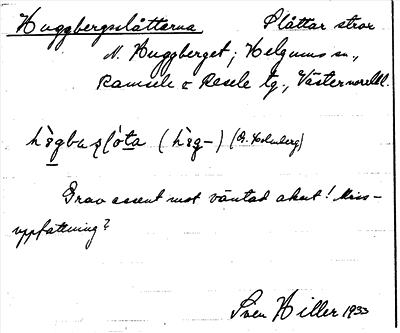 Huggbergsslåttarna Slåttar stror
N. Huggberget; Helgums sn.,
Ramsele o Resele tg., Västernorrl.l.
(G. Holmberg)
Grav accent mot väntad akut! Miss-
uppfattning?
Sven Hiller 1933